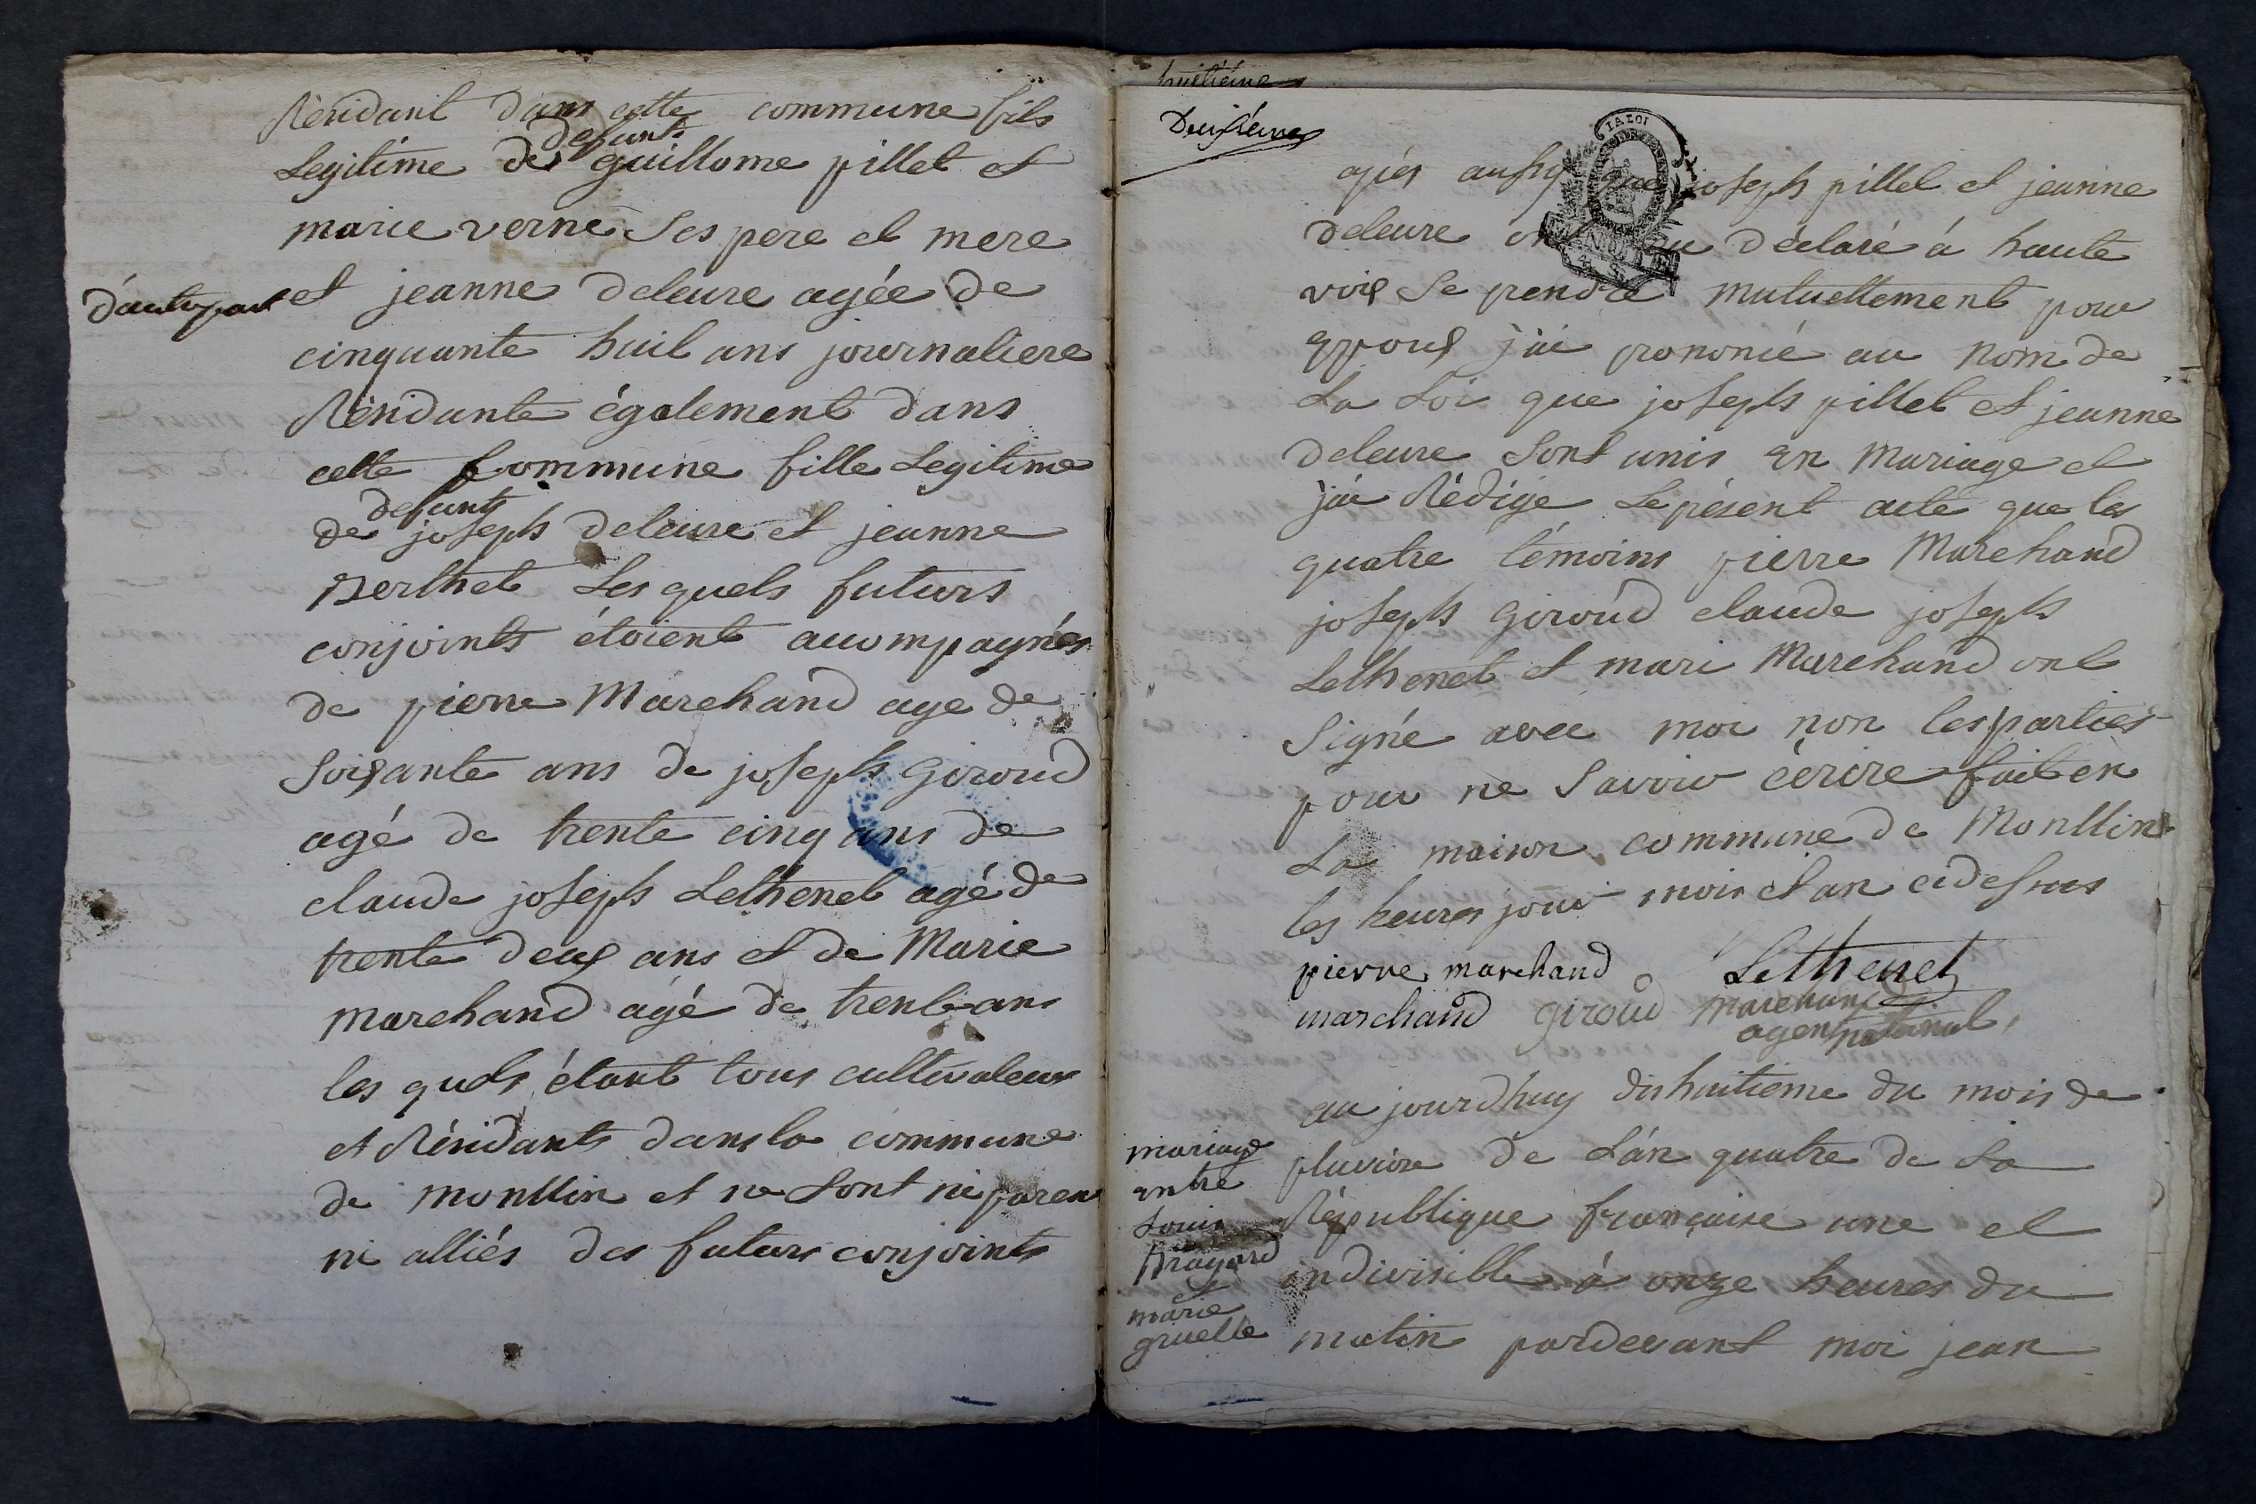 Résidant dans cette commune fils
Legitime de defunts guillome pillet et
marie verne Ses pere et mere
d'autre part et jeanne deleure agée de
cinquante huit ans journaliere
Résidante également dans
cette Commune fille Legitime
de defunts joseph deleure et jeanne
Berthet Les quels futurs
conjoints étoient accompagnés
de pierre Marchand age de
soixante ans de joseph Giroud
agé de trente cinq ans de
claude joseph Lethenet agé de
trente deux ans et de Marie
Marchand agé de trente ans
les quels étant tous cultivateurs
et Résidants dans la commune
de montlin et ne sont ni paren
ni alliés des futurs conjoints
huitiéme
Deuxiéme
apés aussy que joseph pillet et jeanne
LA LOI
deleure ont eu déclaré á haute
voix se prendre mutuellement pour
époux j'ai prononcé au nom de
La Loi que joseph pillet et jeanne
deleure sont unis en mariage et
j'ai Rédigé Le présent acte que les
quatre témoins pierre Marchand
joseph Giroud claude joseph
Lethenet et mari Marchand ont
Signé avec moi non les parties
pour ne savoir écrire fait en
La maison commune de Montlin
les heures jour mois et an cidessus
pierre marchand Lethenet
marchand giroud Marchand
agent national
au jourdhuy dishuitieme du mois de
pluviose de L'an quatre de La
République française une et
indivisible á onze heures du
matin pardevant moi jean
mariage
entre
Louis
Brayard
et
marie
gruelle